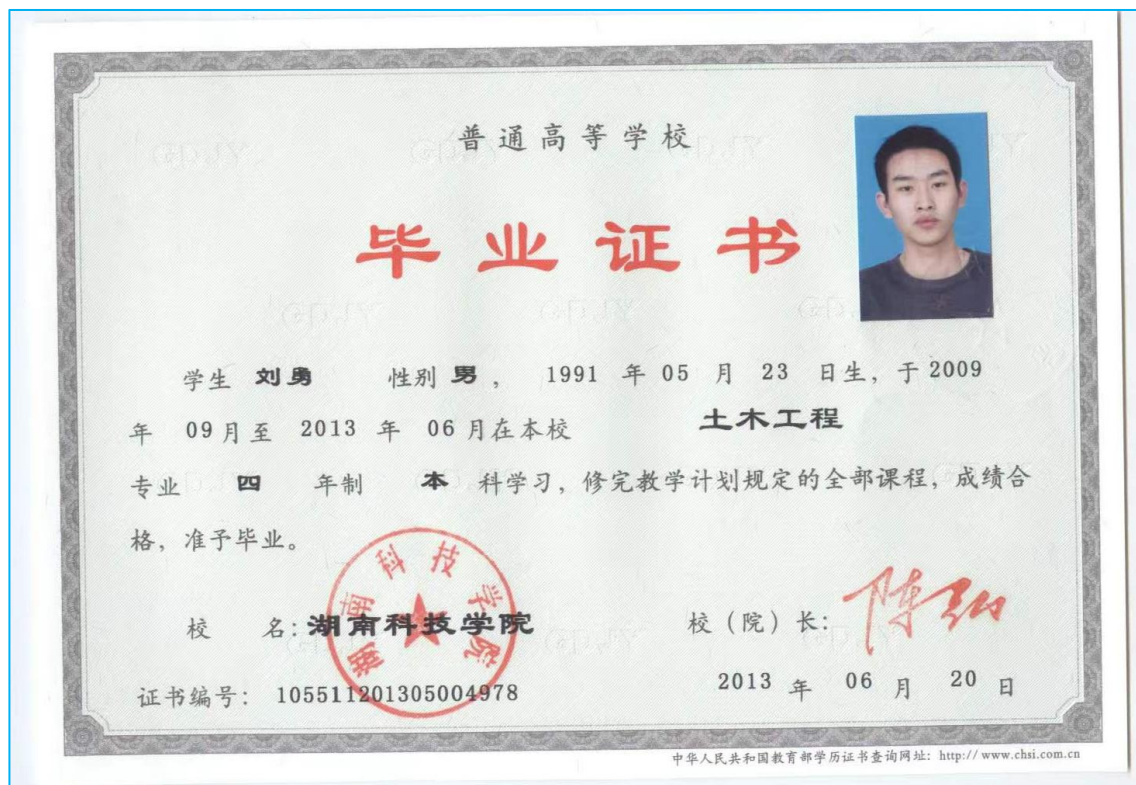 普通高等学校
毕业证书
学生 刘勇 性别 男 ， 1991 年 05 月 23 日生，于 2009
年 09 月至 2013 年 06 月在本校 土木工程
专业 四 年制 本 科学习，修完教学计划规定的全部课程，成绩合
格，准予毕业。
湖南科技学院
校 名：湖南科技学院 校（院）长：
证书编号： 105511201305004978 2013 年 06 月 20 日
中华人民共和国教育部学历证书查询网址：http://www.chsi.com.cn